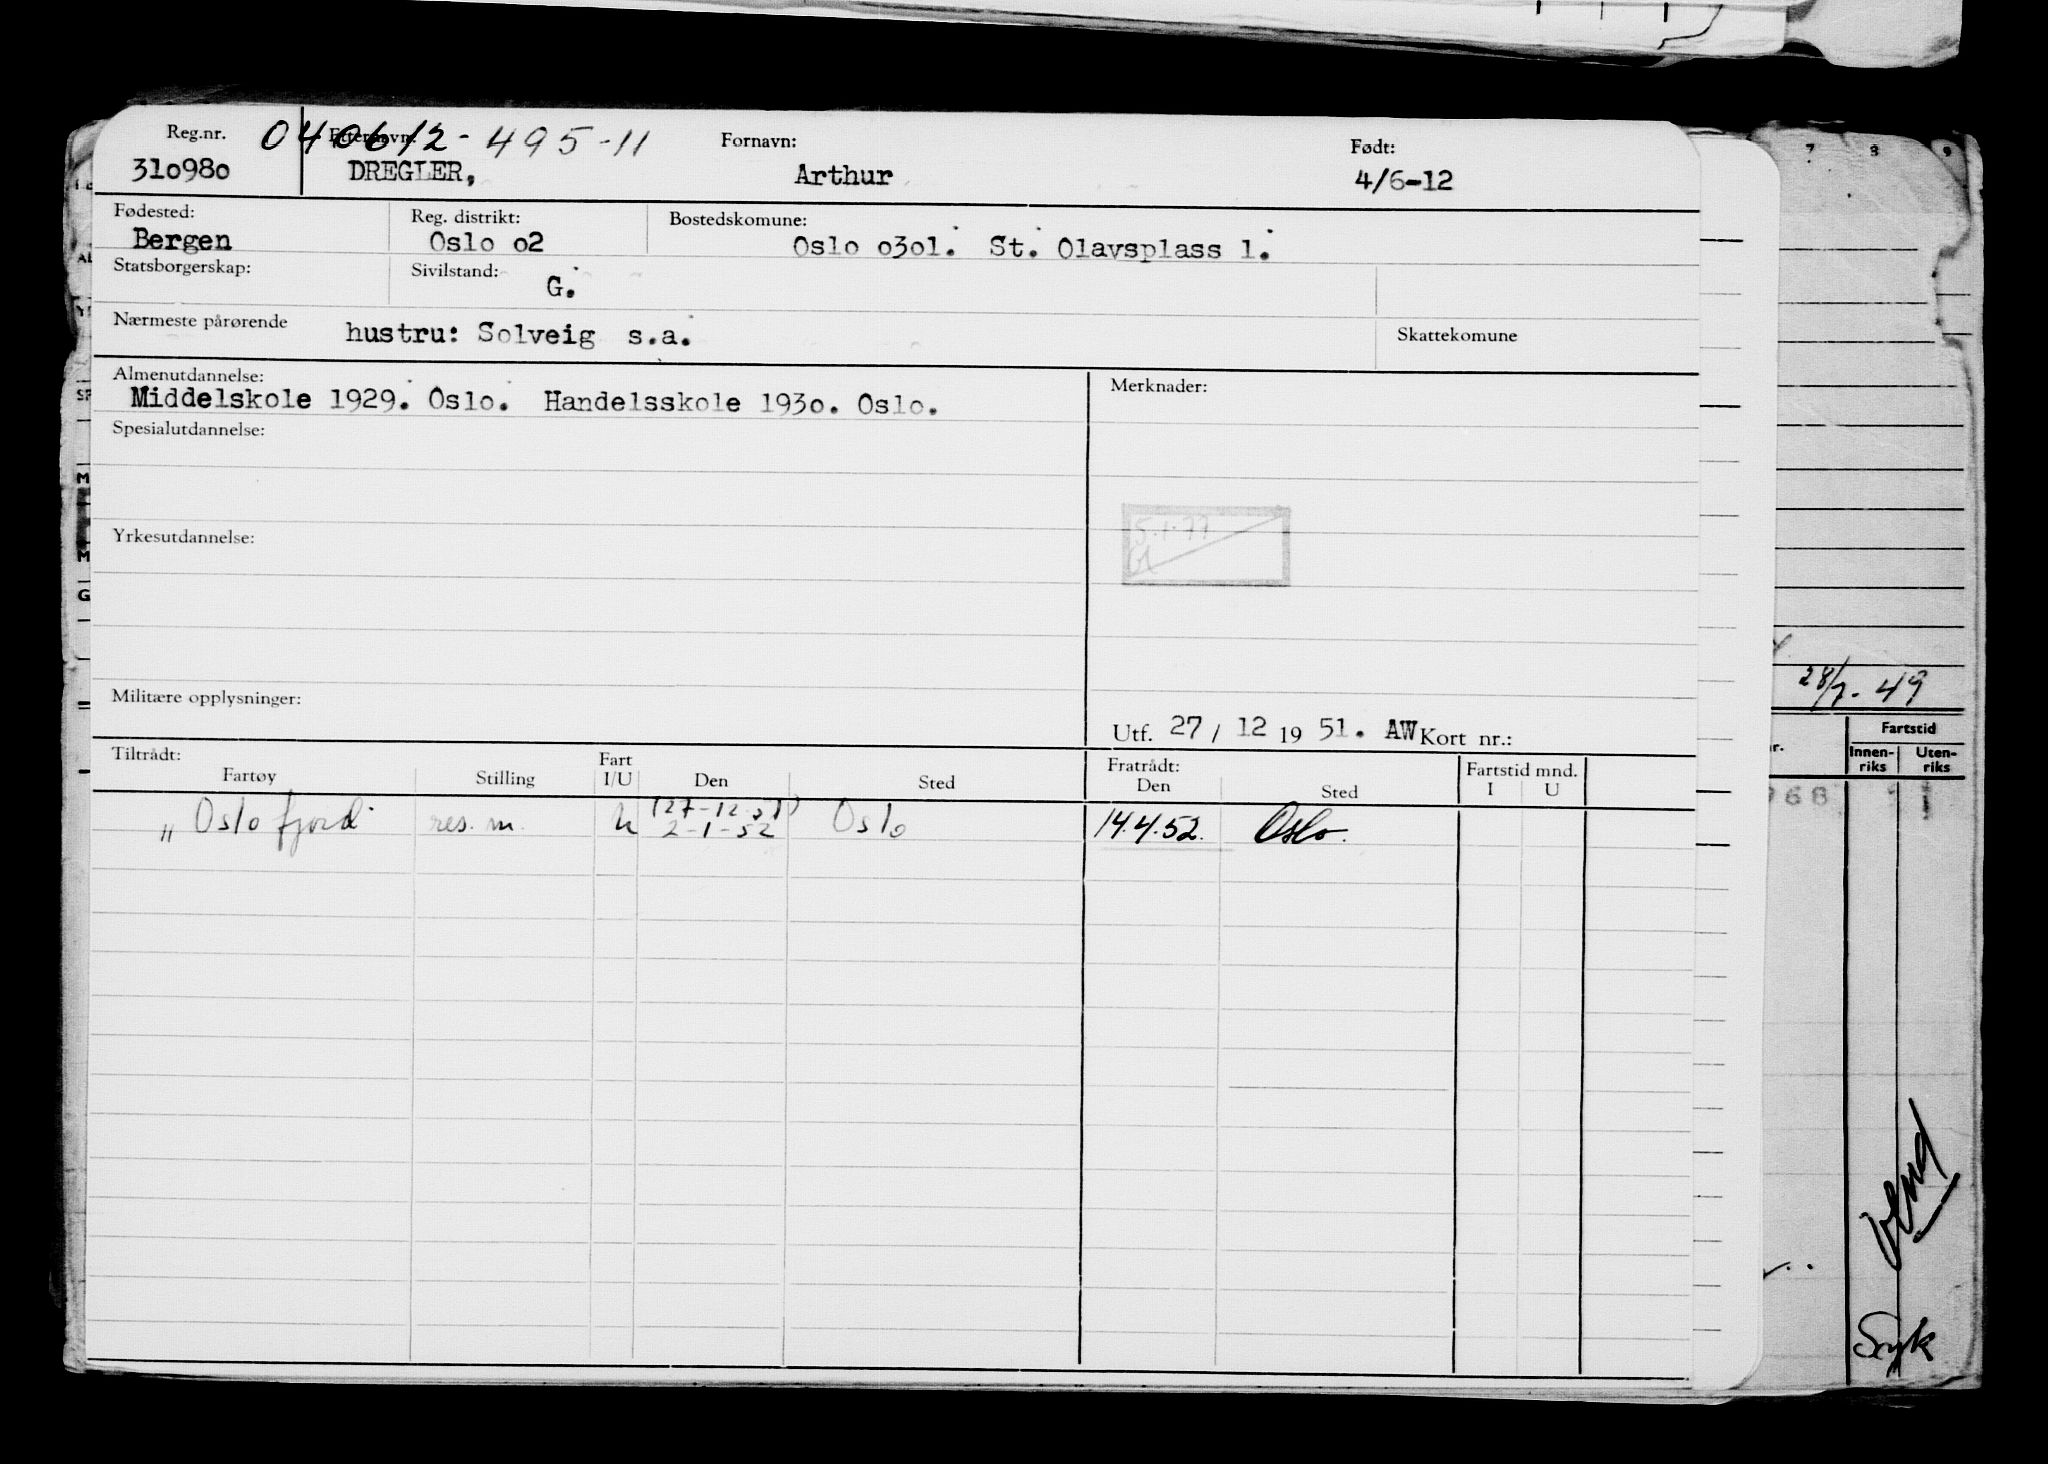 Reg.nr. 040612-495-11 Etternavn: Fornavn: Født:
310980 DREGLER, Arthur 4/6-12
Fødested: Reg. distrikt: Bostedskomune:
Bergen Oslo o2 Oslo o3o1. St. Olavsplass 1.
Statsborgerskap: Sivilstand: G.
Nærmeste pårørende hustru: Solveig s.a. Skattekomune
Almenutdannelse: Merknader:
Middelskole 1929. Oslo. Handelsskole 193o. Oslo.
Spesialutdannelse:
5.1.77
Yrkesutdannelse:
Militære opplysninger:
Utf. 27 / 12 19 51. AW Kort nr.:
Tiltrådt: Fart Fratrådt: Fartstid mnd.
Fartøy Stilling I/U Den Sted Den Sted I U
(27-12-51)
„ Oslofjord res. m. U 2-1-52 Oslo 14.4.52. Oslo.
7 8 9
28/7-49
Fartstid
Innen-
riks
Uten-
riks
968
M
M
G